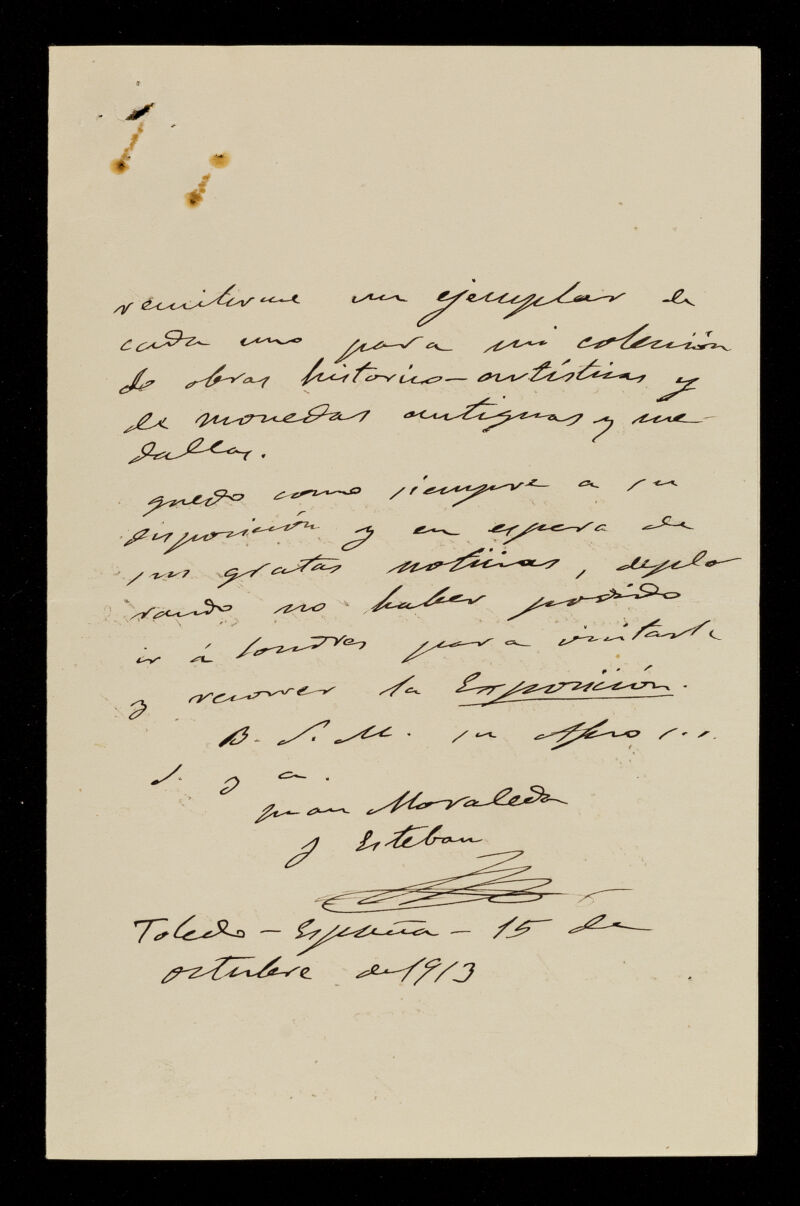 remitirme un ejemplar de
cada uno para mi colección
de obras historico-artísticas y
de monedas antiguas y me-
dallas.
quedo como siempre a su
disposición y en espera de
sus gratas noticias, deplo
rando no haber podido
ir á Londres para visitarle
y recorrer la Exposición.
B. S. M. su Afmo s.s.
S. y a.
Juan Moraleda
y Esteban
Toledo - España - 15 de
octubre de 1913